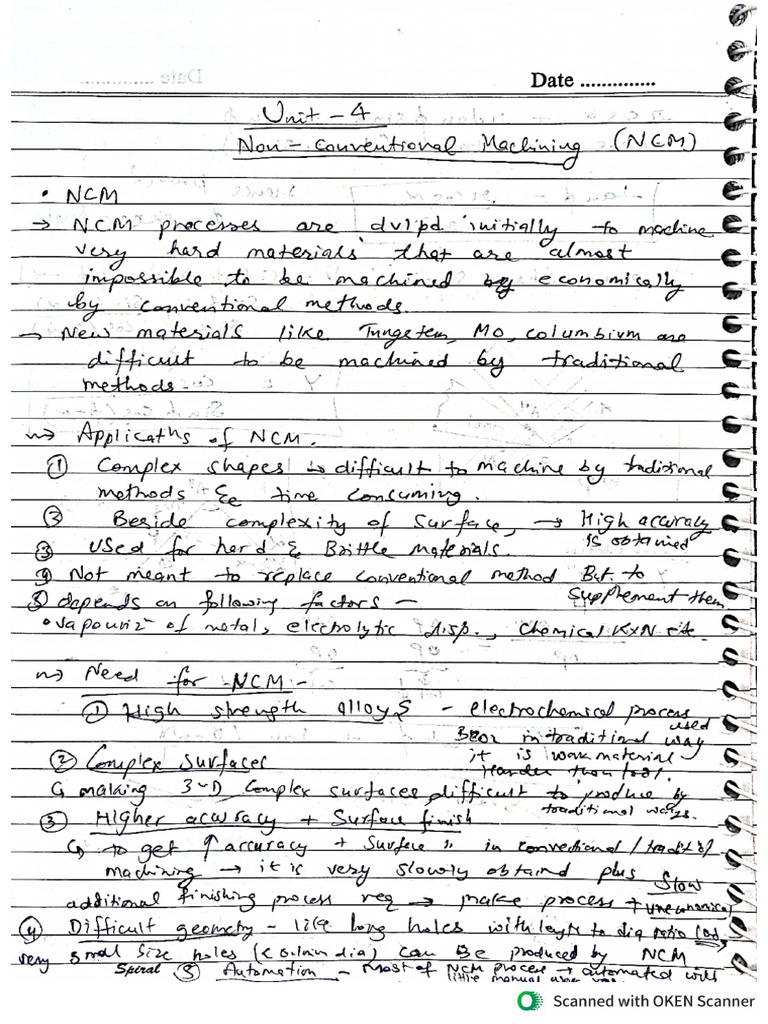 Date ..............
Unit - 4
Non - conventional Machining (NCM)
• NCM
→ NCM processes are dvlpd initially to machine
very hard materials that are almost
impossible to be machined economically
by conventional methods.
→ New materials like Tungsten, MO, columbium are
difficult to be machined by traditional
methods.
Applicaths of NCM.
① Complex shapes → difficult to machine by traditional
methods & time consuming.
② Beside complexity of surface, → High accuracy
is obtained
③ Used for hard & Brittle materials.
④ Not meant to replace conventional method But to
supplement them
⑤ depends on following factors -
• vapouriz of metal, electrolytic disp., chemical RXN etc.
Need for NCM -
① High strength alloys - electrochemical process
used
in traditional way
it is work material
Harder than tool.
② Complex surfaces
↳ making 3-D Complex surfaces difficult to produce by
traditional ways.
③ Higher accuracy + Surface finish
↳ to get ↑ accuracy + Surface " in conventional /
machining → it is very slowly obtained plus
additional finishing process req → make process Slow
+ uneconomical
④ Difficult geometry - like long holes with to dia ratio
very small size holes (< dia) can Be produced by NCM
Spiral ⑤ Automation - Most of NCM process → automated with
little manual
Scanned with OKEN Scanner